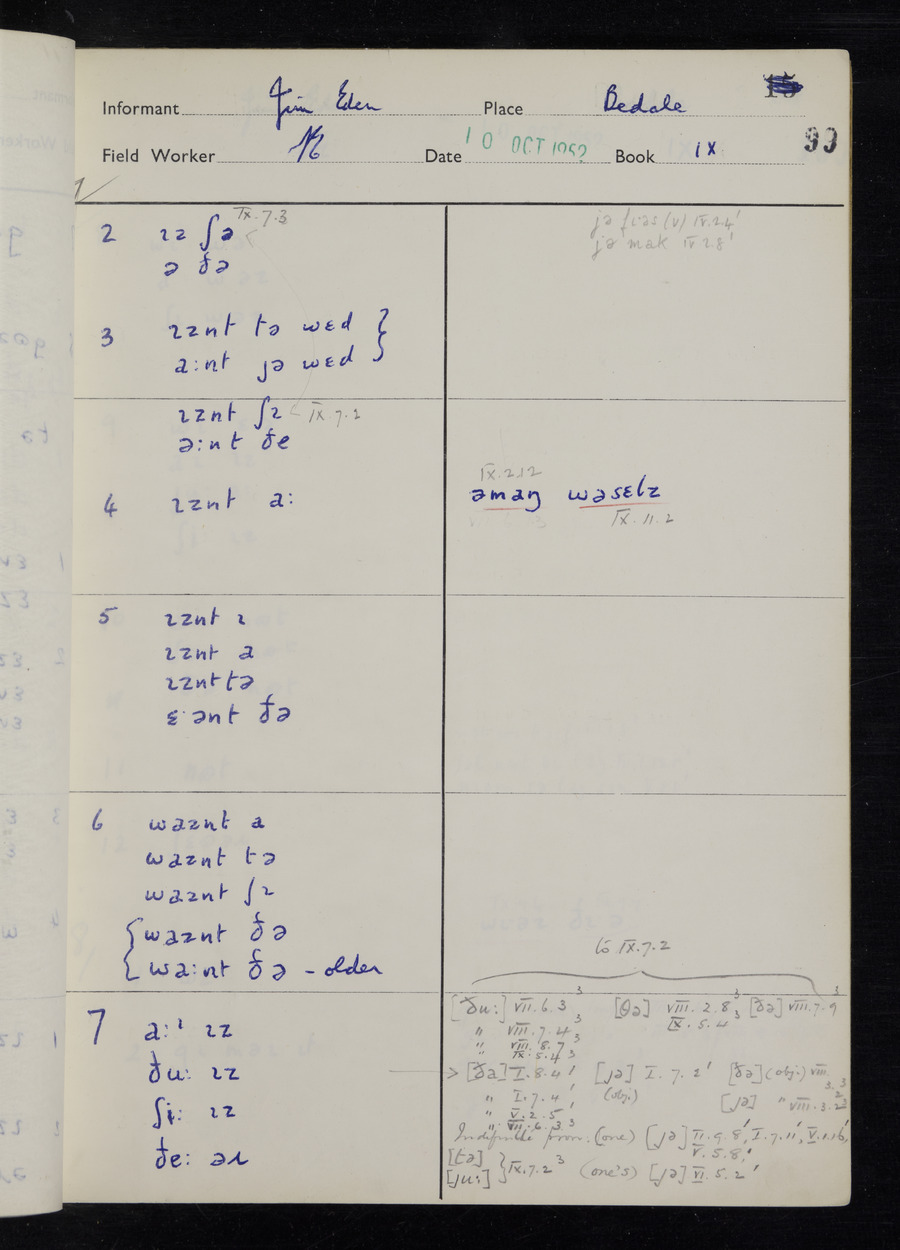 Informant Jim Eden Place Bedale
Field Worker Date 10 OCT 195 Book IX 99
2 ɪz ʃə IX.7.3
ə ðə
jə mak IV 2.8¹
3 ɪznt tə wɛd }
a:nt jə wɛd }
ɪznt ʃɪ IX.7.2
ə:nt ðe
IX.2.12
4 ɪznt a: əmaŋ wəsɛlz
IX.11.2
5 ɪznt ɪ
ɪznt a
ɪznt tə
ɛ·ənt ðə
6 waznt a
waznt tə
waznt ʃɪ
{ waznt ðə
{ wa:nt ðə - older
to IX.7.2
7 a:ᶦ ɪz
ðu: ɪz
ʃi: ɪz
ðe: əɹ
[ðu:] VII.6.3³ [θə] VIII.2.8³ [ðə] VIII.7.9³
" VIII.7.4³ IX.5.4³
" VIII.8.7³
" IX.5.4³
→ [ða] I.8.4¹ [jə] I.7.2¹ [ðə] (obj.) VIII.3.3³
" I.7.4¹ (obj.) [jə] " VIII.3.2³
" V.2.5¹
" VII.6.3³
Indefinite pron. (one) [jə] II.9.8¹, I.7.11¹, V.1.16¹,
V.5.8¹
[tə]
[ju:] } IX.7.2³ (one's) [jə] VI.5.2¹